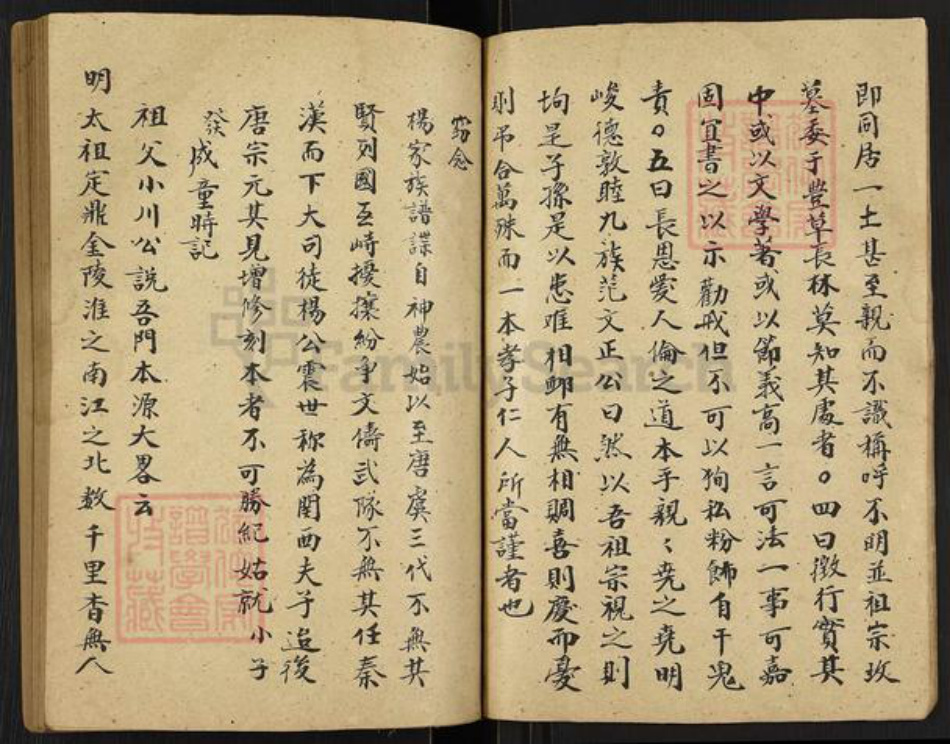 即同居一土甚至親而不識稱呼不明並祖宗坟
墓委于豐草長林莫知其處者○四曰徵行實其
中或以文學著或以節義高一言可法一事可嘉
固宜書之以示勸戒但不可以狥私粉飾自干鬼
責○五曰長恩愛人倫之道本乎親〻堯之堯明
峻德敦睦九族范文正公曰然以吾祖宗視之則
均是子孫是以患难相卹有無相賙喜則慶而憂
則吊合萬殊而一本孝子仁人所當謹者也
竊念
楊家族譜諜自神農始以至唐虞三代不無其
賢列國互峙擾攘紛爭文儔武隊不無其任秦
漢而下大司徒楊公震世称為関西夫子迨後
唐宗元其見增修刻本者不可勝紀姑就小子
發成童時記
祖父小川公說吾門本源大畧云
明
太祖定鼎金陵淮之南江之北数千里杳無人
FamilySearch